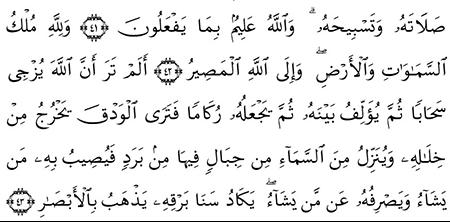 صَلَاتَهُۥ وَتَسْبِيحَهُۥۗ وَٱللَّهُ عَلِيمٌۢ بِمَا يَفْعَلُونَ ﴿٤١﴾ وَلِلَّهِ مُلْكُ
ٱلسَّمَٰوَٰتِ وَٱلْأَرْضِۖ وَإِلَى ٱللَّهِ ٱلْمَصِيرُ ﴿٤٢﴾ أَلَمْ تَرَ أَنَّ ٱللَّهَ يُزْجِى
سَحَابًا ثُمَّ يُؤَلِّفُ بَيْنَهُۥ ثُمَّ يَجْعَلُهُۥ رُكَامًا فَتَرَى ٱلْوَدْقَ يَخْرُجُ مِنْ
خِلَٰلِهِۦ وَيُنَزِّلُ مِنَ ٱلسَّمَآءِ مِن جِبَالٍ فِيهَا مِنۢ بَرَدٍ فَيُصِيبُ بِهِۦ مَن
يَشَآءُ وَيَصْرِفُهُۥ عَن مَّن يَشَآءُۖ يَكَادُ سَنَا بَرْقِهِۦ يَذْهَبُ بِٱلْأَبْصَٰرِ ﴿٤٣﴾